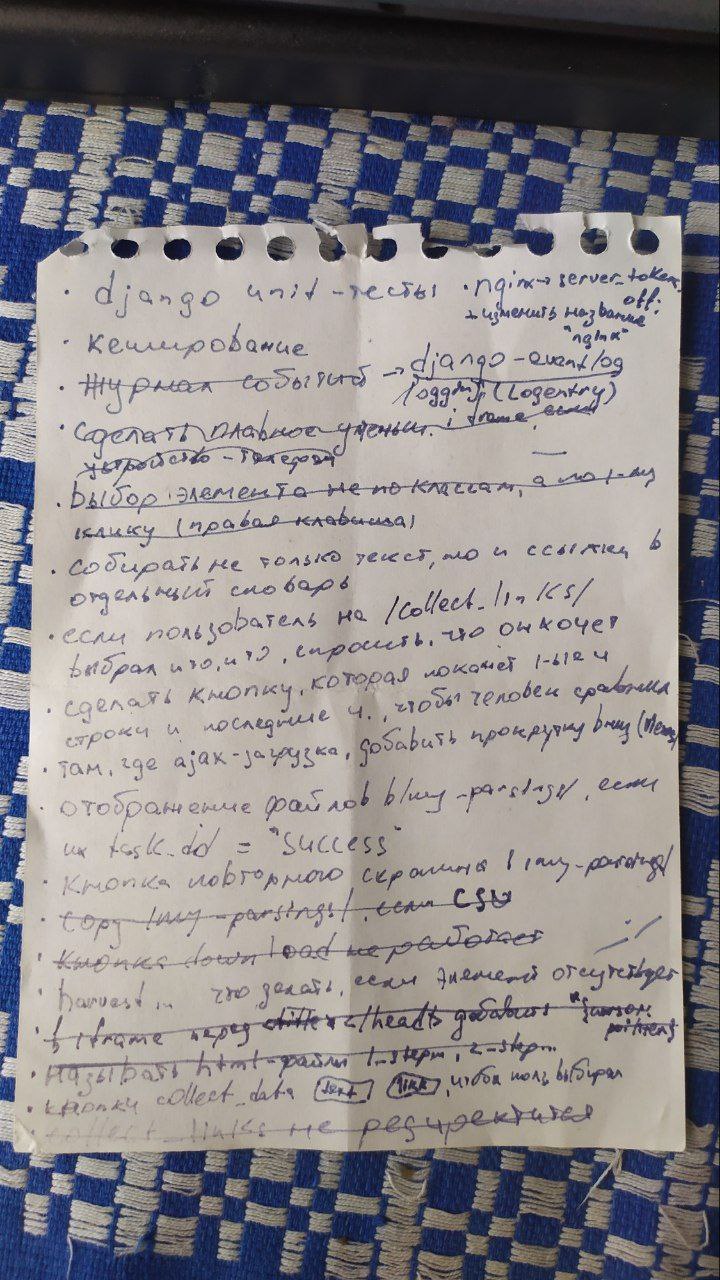 · django unit-тесты
· nginx → server_tokens
off;
+ изменить название
"nginx"
· кеширование
· журнал событий → django-eventlog
logging (Logentry)
· сделать плавное уменьш. iframe, если
устройство - телефон
· выбор элемента не по классам, а по 1-му
клику (правая клавиша)
· собирать не только текст, но и ссылки в
отдельный словарь
· если пользователь на /collect_links/
выбрал что, спросить, что он хочет
· сделать кнопку, которая покажет 1-ые 4
строки и последние 4, чтобы человек сравнил
· там, где ajax-загрузка, добавить прокрутку вниз
· отображение файлов в /my-parsings/, если
их task_id = "success"
· кнопка повторного скрапинга в /my-parsings/
· copy /my-parsings/, если CSV
· кнопка download не работает
· harvest... что делать, если элемент отсутствует
· в iframe перед </head> добавить
· называть html-файлы 1_step, 2_step
· кнопки collect_data [text] [link], чтобы польз выбирал
· collect_links не редиректится